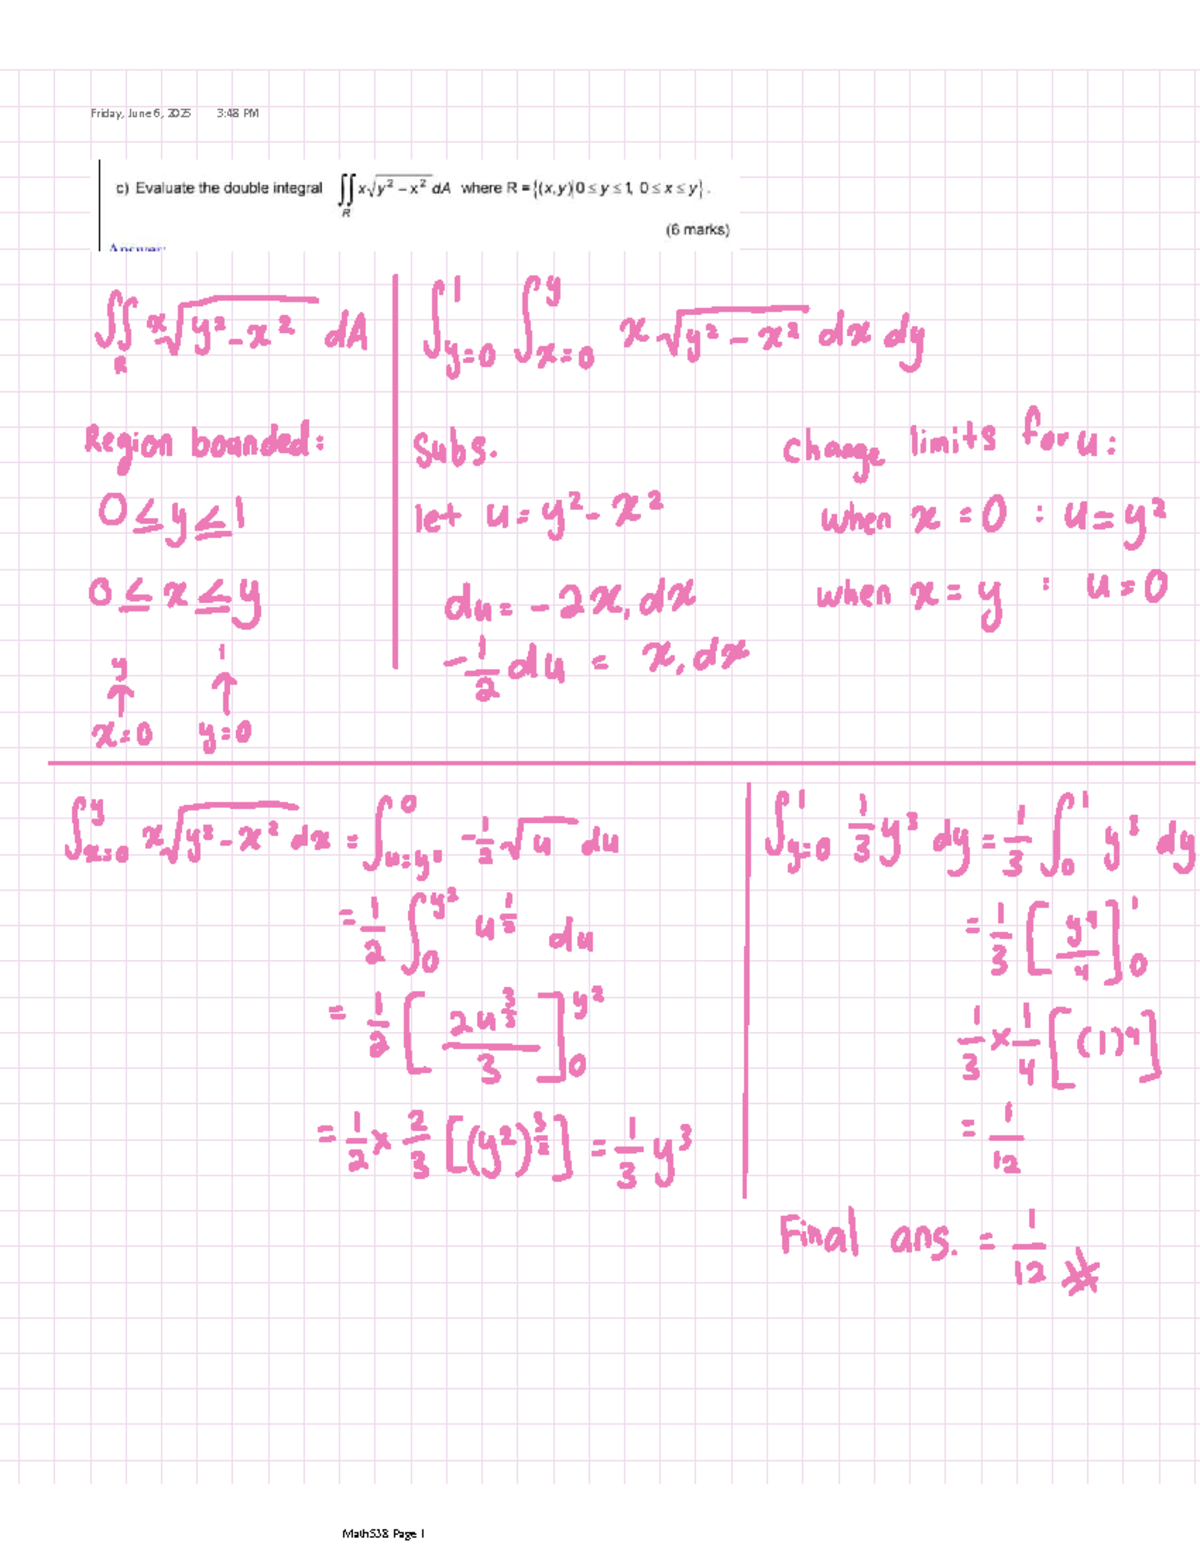 Friday, June 6, 2025 3:48 PM
c) Evaluate the double integral ∬_R x√(y² – x²) dA where R = {(x, y)|0 ≤ y ≤ 1, 0 ≤ x ≤ y}.
(6 marks)
Answer:
∬_R x√(y² – x²) dA
Region bounded:
0 ≤ y ≤ 1
0 ≤ x ≤ y
y 1
↑ ↑
x=0 y=0
∫_{y=0}^{1} ∫_{x=0}^{y} x√(y² – x²) dx dy
Subs.
let u = y² – x²
du = – 2x, dx
–1/2 du = x, dx
Change limits for u:
when x = 0 : u = y²
when x = y : u = 0
∫_{x=0}^{y} x√(y² – x²) dx = ∫_{u=y²}^{0} –1/2 √u du
= 1/2 ∫_0^{y²} u^{1/2} du
= 1/2 [2u^{3/2}/3]_0^{y²}
= 1/2 × 2/3 [(y²)^{3/2}] = 1/3 y³
∫_{y=0}^{1} 1/3 y³ dy = 1/3 ∫_0^1 y³ dy
= 1/3 [y⁴/4]_0^1
1/3 × 1/4 [(1)⁴]
= 1/12
Final ans. = 1/12 ※
Math538 Page 1